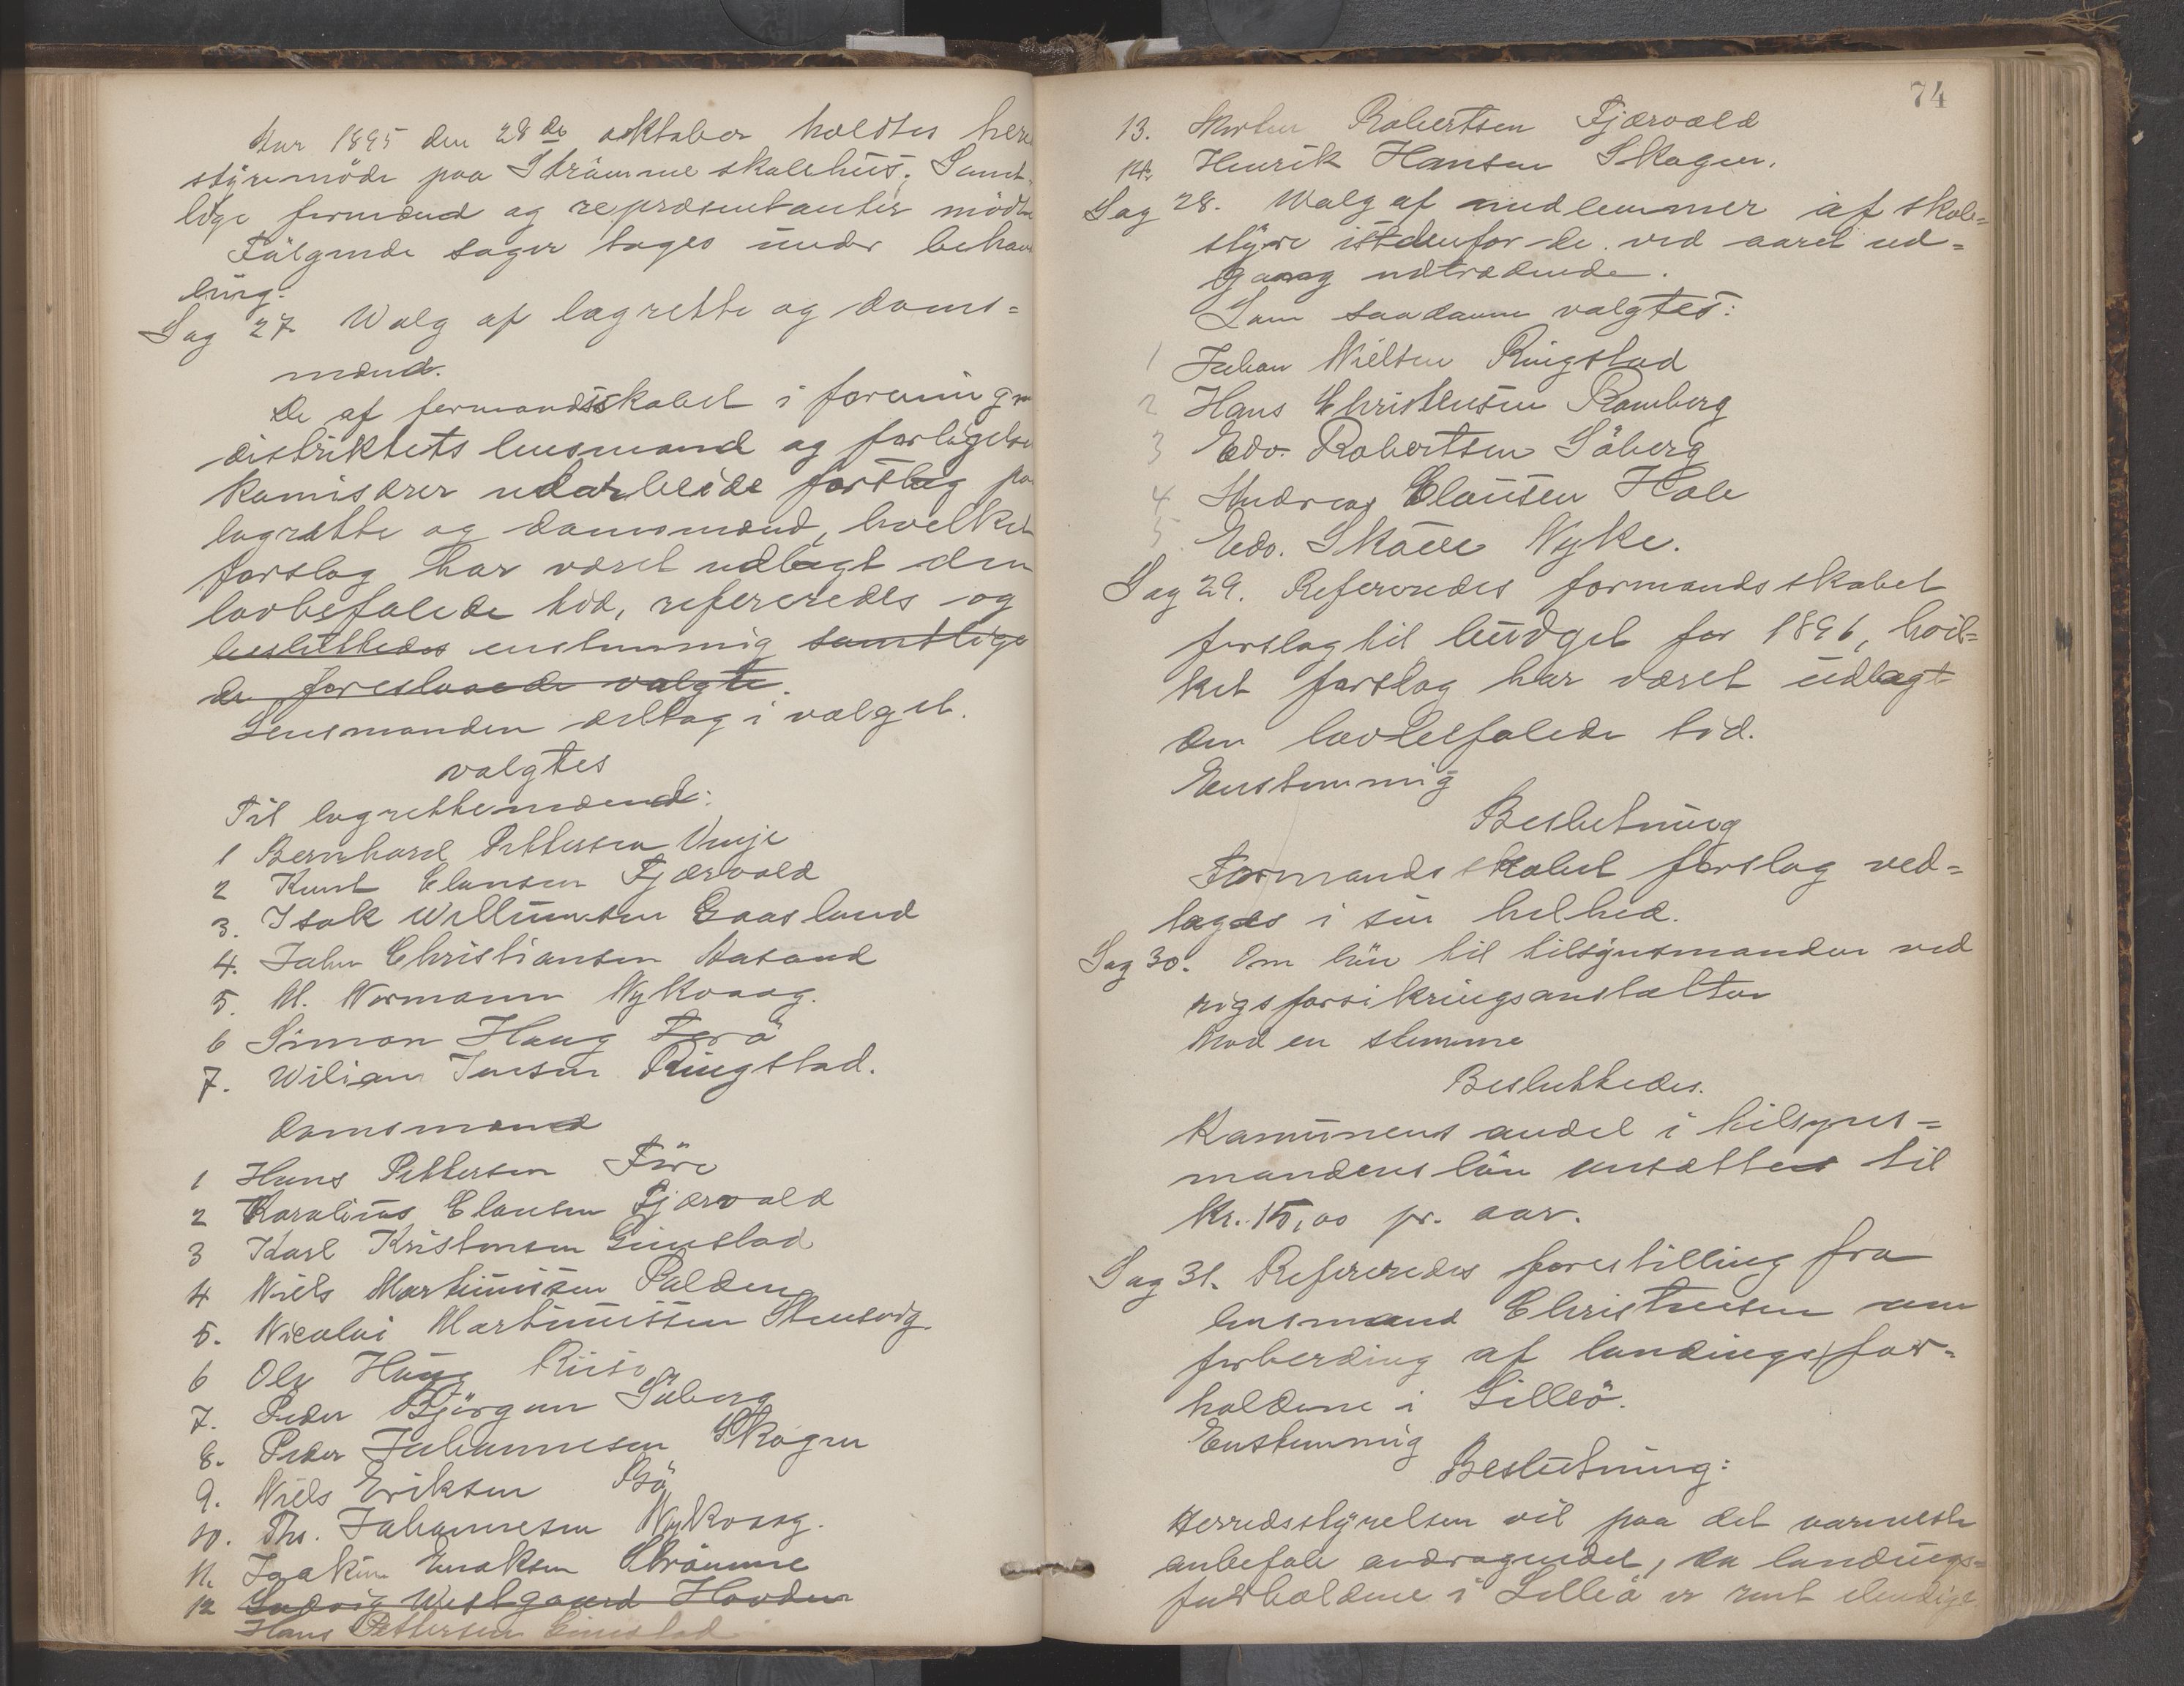 Aar 1895 den 28de oktober holdtes here
styremöde paa Strömme skolehus. Samt-
lige formænd og repræsentanter mödte
Fölgende sager toges under behan
ling:
Sag 27 Valg af lagrette og doms=
mænd.
De af formandsskabet i forening m
distriktets lensmand og forligelse
komisærer udarbeide forslag paa
lagrætte og domsmænd, hvilket
forslag har været udlagt den
lovbefalede tid, refereredes og
besluttedes enstemmig samtlige
de foreslaaede valgte.
Lensmanden deltog i valget.
valgtes
Til lagrettemænd:
1 Bernhard Pettersen Vinje
2 Knut Clausen Fjærvold
3. Isak Willumsen Gaasland
4. Johan Christiansen Aasand
5. M. Normann Nykvaag.
6 Simon Haug Førö
7. Wiliam Jensen Ringstad.
Domsmænd
1 Hans Pettersen Före
2 Karolius Clausen Fjærvold
3 Karl Kristensen Guustad
4 Niels Martinussen Valden
5. Nicolai Martinussen Stensvig
6 Ole Haug Risö
7. Peder Björgan Söberg
8. Peder Johannesen Skogen
9. Niels Eriksen Bö
10. Ths. Johannesen Nykvaag.
11. Joakim Enoksen Strömme
12 Ludvig Westgaard Hovden
Hans Pettersen Eimstad
74
13. Morten Robertsen Fjærvold
14. Henrik Hansen Skogen.
Sag 28. Valg af medlemmer af skole=
styre istedenfor de ved aaret ud=
gang udtrædende.
Som saadanne valgtes:
1 Johan Nielsen Ringstad
2 Hans Christensen Ramberg
3 Edv. Robertsen Söberg
4 Andreas Clausen Hole
5. Edv. Skaae Nyke.
Sag 29. Refereredes formandsskabet
forslag til budget for 1896, hvil=
ket forslag har været udlagt
den lovbefalede tid.
Enstemmig
Beslutning
Formandsskabet forslag ved=
toges i sin helhed.
Sag 30. Om lön til tilsynsmanden ved
rigsforsikringsanstalten
Mod en stemme
Besluttedes.
Komunens andel i tilsyns=
mandens lön ansættes til
Kr. 15,00 pr. aar.
Sag 31. Refereredes forestilling fra
lensmand Christensen om
forberding af landingsfor-
holdene i Lilleö.
Enstemmig
Beslutning:
Herredsstyrelsen vil paa det varmeste
anbefale andragendet, da landings=
forholdene i Lilleö er rent elendige.